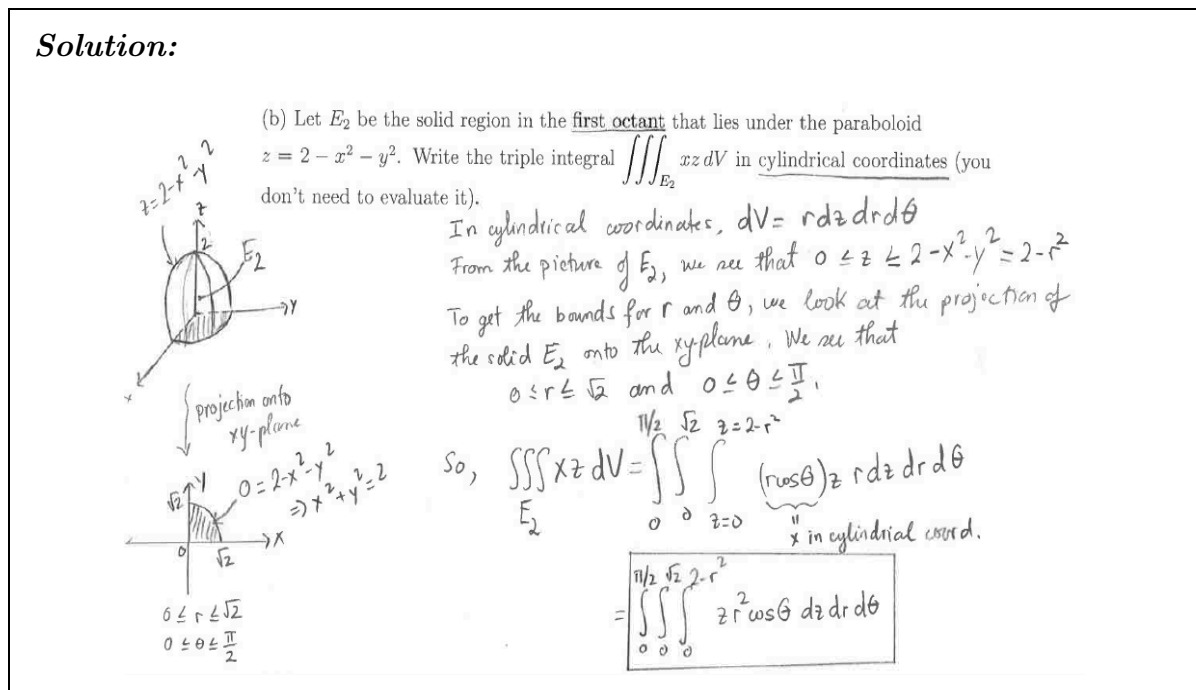 Solution:
(b) Let E₂ be the solid region in the first octant that lies under the paraboloid
z = 2 − x² − y². Write the triple integral ∭_{E₂} xz dV in cylindrical coordinates (you
don't need to evaluate it).
z=2-x²-y²
z
2
E₂
y
x
projection onto
xy-plane
√2
y
0=2-x²-y²
⇒ x²+y²=2
0
√2
x
0 ≤ r ≤ √2
0 ≤ θ ≤ π/2
In cylindrical coordinates, dV = r dz dr dθ
From the picture of E₂, we see that 0 ≤ z ≤ 2-x²-y² = 2-r²
To get the bounds for r and θ, we look at the projection of
the solid E₂ onto the xy-plane. We see that
0 ≤ r ≤ √2 and 0 ≤ θ ≤ π/2.
So, ∭_{E₂} xz dV = ∫_0^{π/2} ∫_0^{√2} ∫_{z=0}^{z=2-r²} (r cosθ) z r dz dr dθ
"
x in cylindrial coord.
= ∫_0^{π/2} ∫_0^{√2} ∫_0^{2-r²} z r² cosθ dz dr dθ